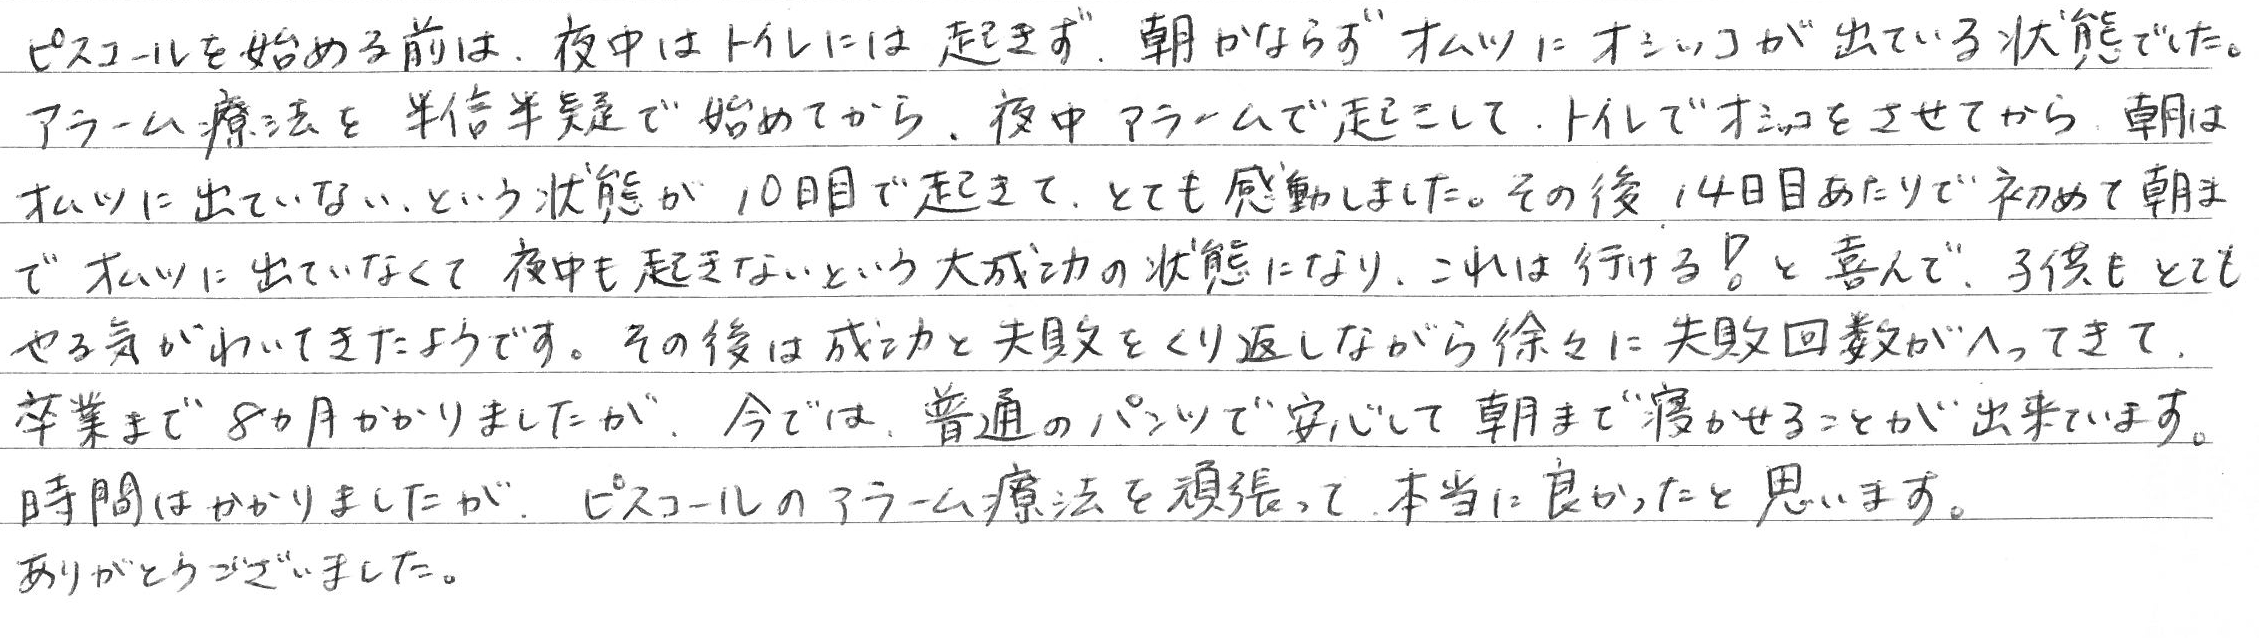 ピスコールを始める前は、夜中はトイレには起きず、朝かならずオムツにオシッコが出ている状態でした。
アラーム療法を半信半疑で始めてから、夜中アラームで起こして、トイレでオシッコをさせてから、朝は
オムツに出ていない、という状態が10日目で起きて、とても感動しました。その後14日目あたりで初めて朝ま
でオムツに出ていなくて夜中も起きないという大成功の状態になり、これは行ける!?と喜んで、子供もとても
やる気がわいてきたようです。その後は成功と失敗をくり返しながら徐々に失敗回数がへってきて、
卒業まで8カ月かかりましたが、今では、普通のパンツで安心して朝まで寝かせることが出来ています。
時間はかかりましたが、ピスコールのアラーム療法を頑張って、本当に良かったと思います。
ありがとうございました。